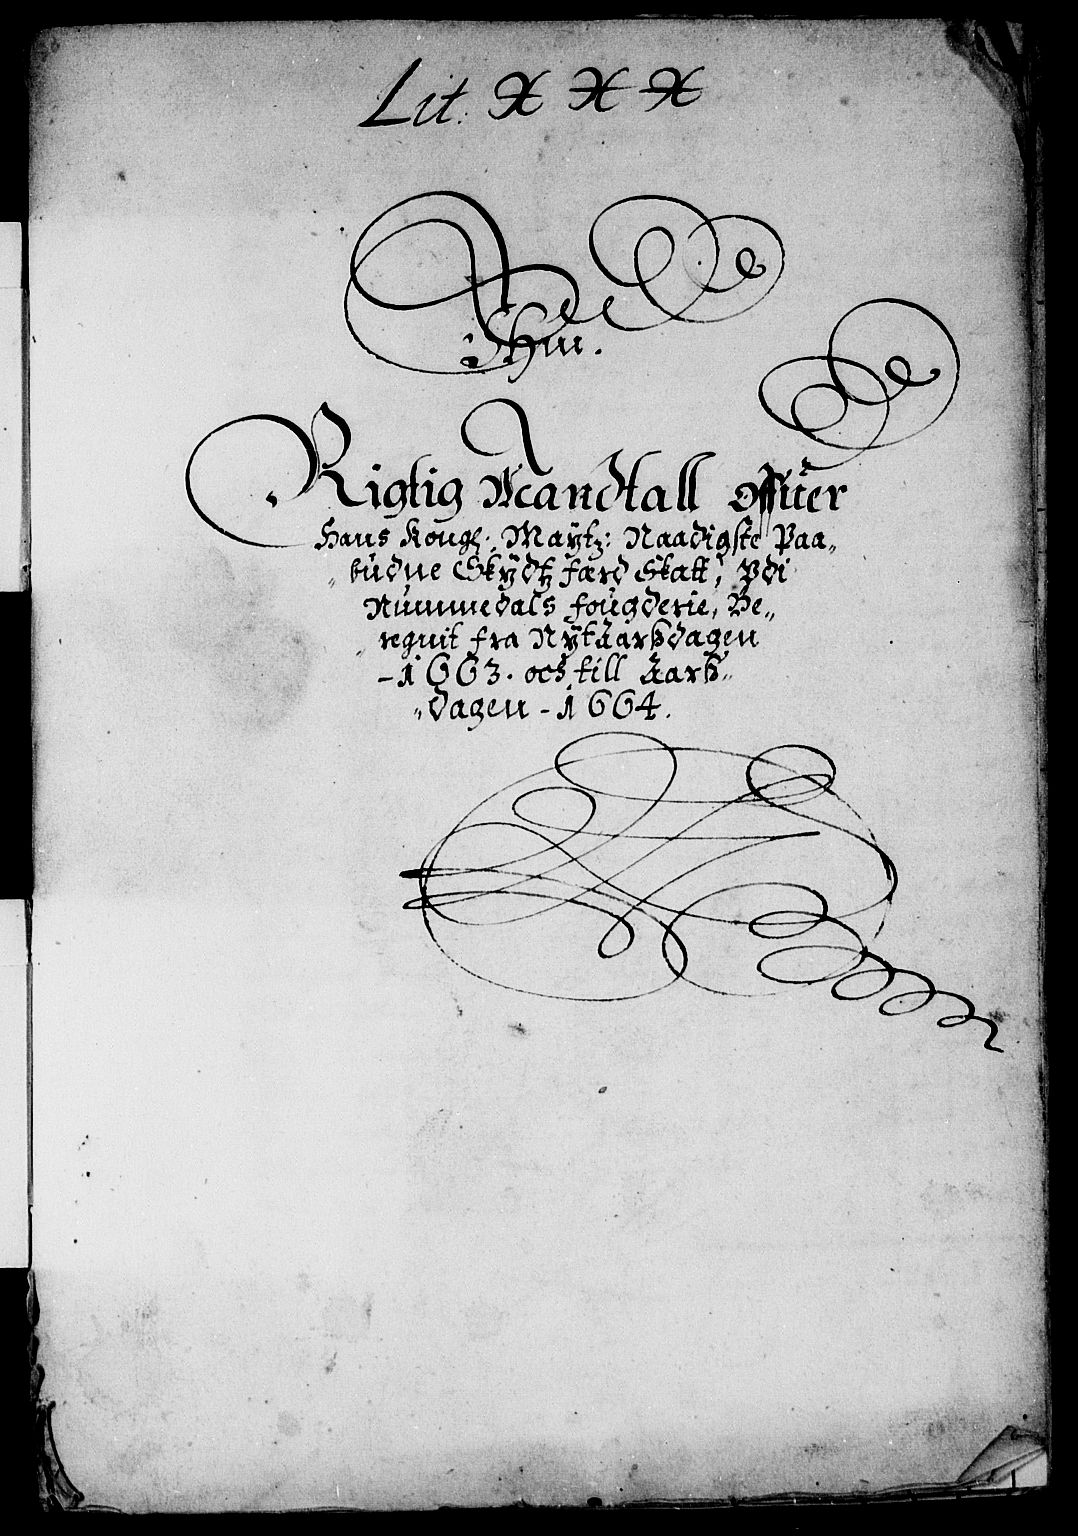 Lit. X X X
Rigtig Mandtall offuer
Hans Kongl: Maytz: Naadigste Paa„
„budne Skydtz færd Skatt, Vdi
Nummedals fougderie, Be„
„regnit fra Nytaarsdagen
-1663. och till Aars„
„dagen -1664.